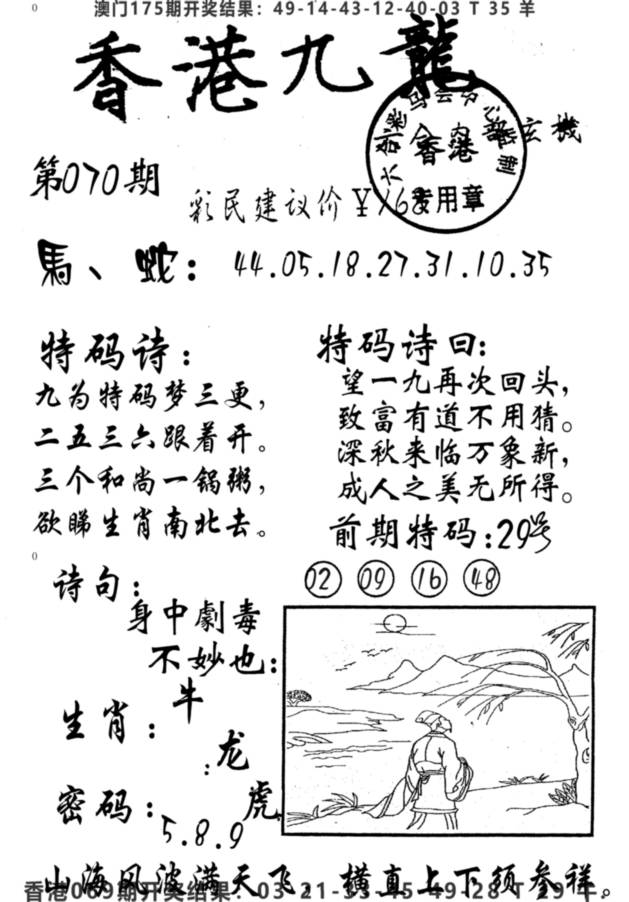 澳门175期开奖结果：49-14-43-12-40-03 T 35 羊
香港九龍
香港
专用章
玄機
第070期
彩民建议价¥168
馬、蛇：44.05.18.27.31.10.35
特码诗：
九为特码梦三更，
二五三六跟着开。
三个和尚一锅粥，
欲睇生肖南北去。
特码诗曰：
望一九再次回头，
致富有道不用猜。
深秋来临万象新，
成人之美无所得。
前期特码：29号
02 09 16 48
诗句：
身中劇毒
不妙也：
生肖：牛
：龙
虎
密码：5.8.9
山海风波满天飞，横直上下须参祥。
香港069期开奖结果：03-21-33-45-49-28 T 29 牛